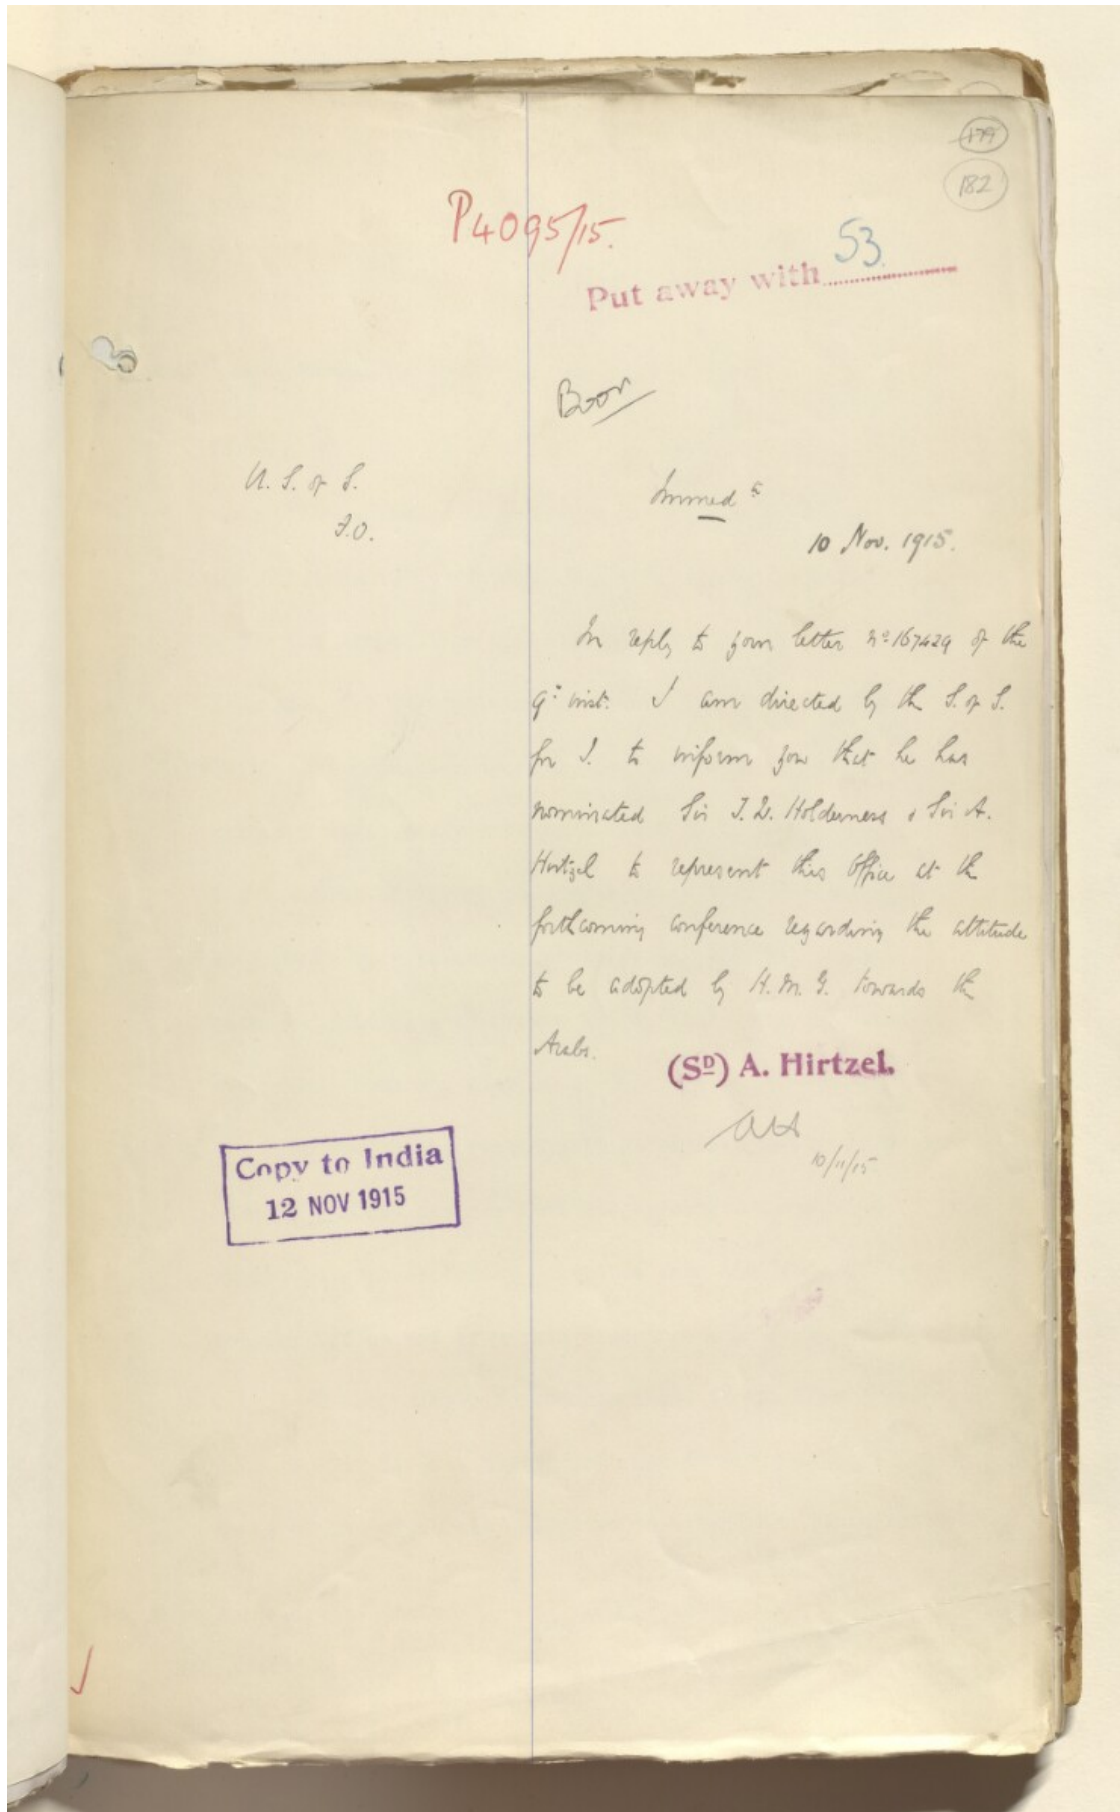 179
182
P4095/15.
Put away with 53
U. S. of S.
F.O.
Immed te
10 Nov. 1915.
In reply to your letter no 167429 of the
9th inst. I am directed by the S. of S.
for I. to inform you that he has
nominated Sir T. W. Holderness & Sir A.
Hirtzel to represent this Office at the
forthcoming conference regarding the attitude
to be adopted by H. M. G. towards the
Arabs.
(SD) A. Hirtzel.
AH
10/11/15
Copy to India
12 NOV 1915